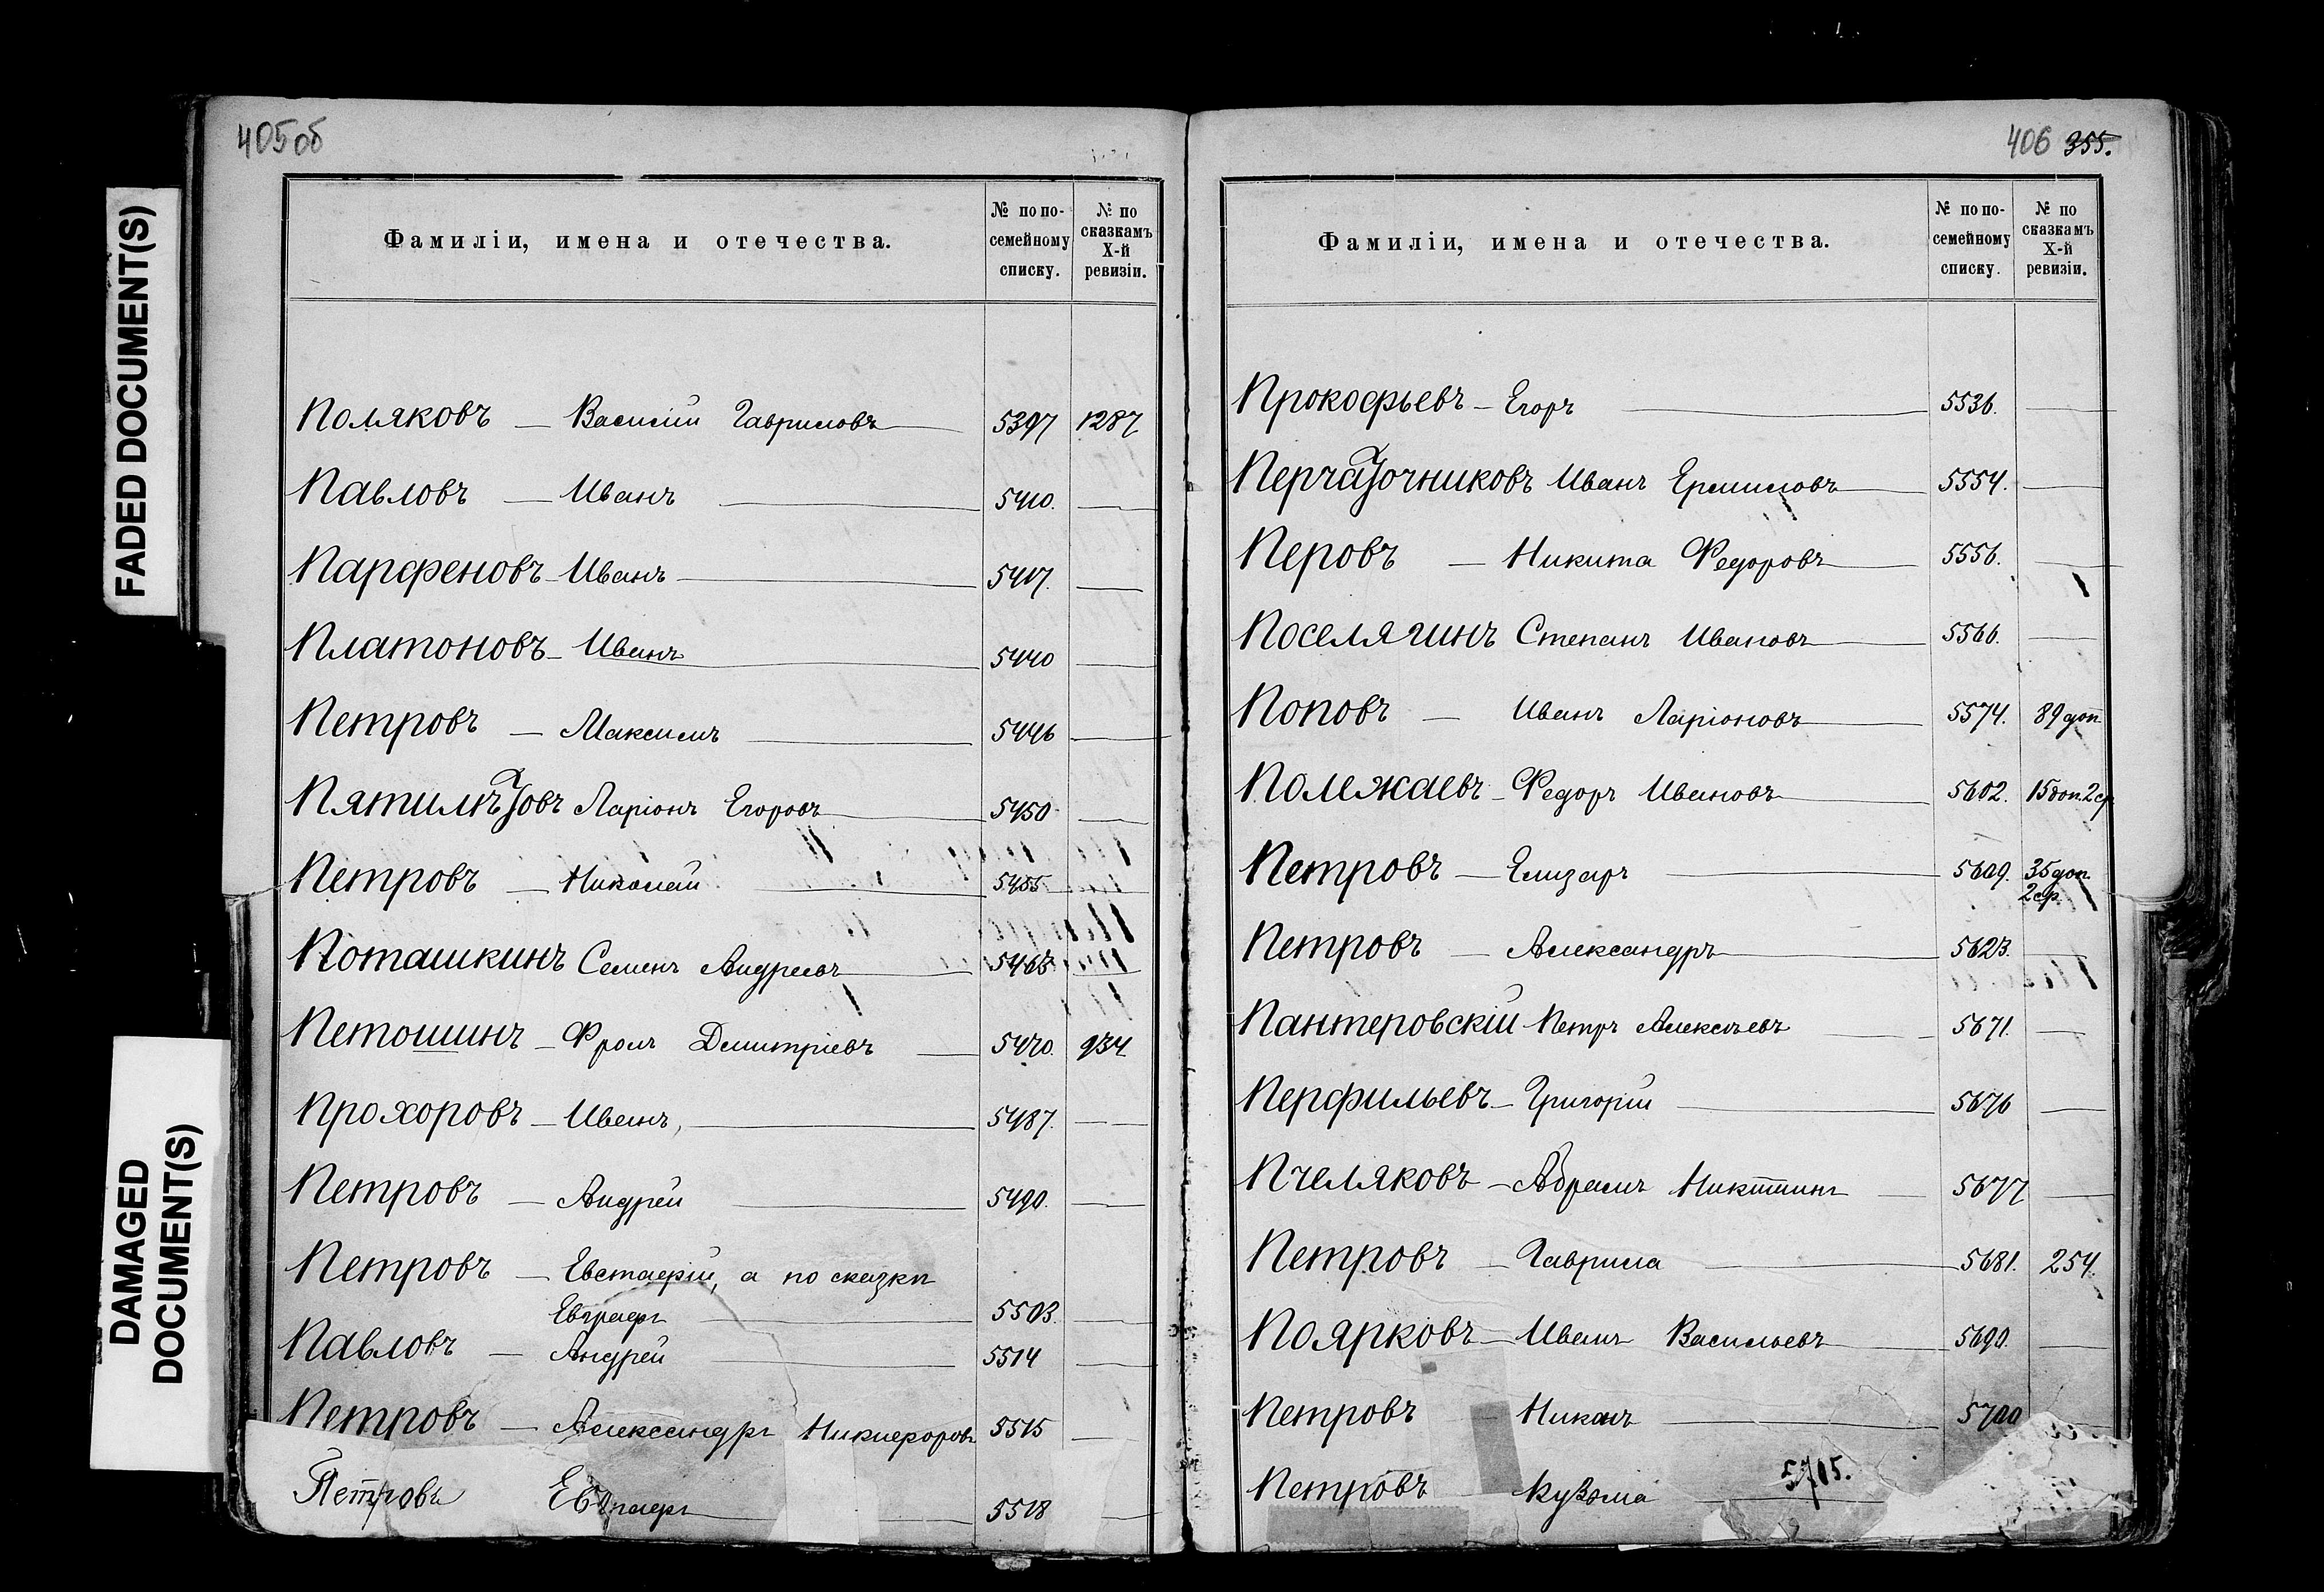 FADED DOCUMENT(S)
DAMAGED
DOCUMENT(S)
405об
Фамиліи, имена и отечества.
№ по по-
семейному
списку.
№ по
сказкамъ
X-й
ревизіи.
Поляковъ — Василій Гавриловъ 5397 1287
Павловъ — Иванъ 5410.
Парфеновъ Иванъ 5417.
Платоновъ Иванъ 5440
Петровъ — Максимъ 5446
Пятилѣтовъ Ларіонъ Егоровъ 5450
Петровъ — Николай 5455
Поташкинъ Семенъ Андреевъ 5463
Петошинъ — Фролъ Дмитріевъ — 5470. 934
Прохоровъ — Иванъ, 5487.
Петровъ — Андрей 5490.
Петровъ — Евстафій, а по сказкѣ
Евграфъ 5503.
Павловъ — Андрей 5514
Петровъ — Александръ Никифоровъ 5515
Петровъ Евграфъ 5518
406 355.
Фамиліи, имена и отечества.
№ по по-
семейному
списку.
№ по
сказкамъ
X-й
ревизіи.
Прокофьевъ — Егоръ 5536.
Перчаточниковъ Иванъ Ермиловъ 5554.
Перовъ — Никита Федоровъ 5556.
Поселягинъ Степанъ Ивановъ 5566.
Поповъ — Иванъ Ларіоновъ 5574. 89 доп
Полежаевъ — Федоръ Ивановъ 5602. 15 доп. 2 ср
Петровъ — Елизаръ 5609. 35 доп.
2 ср.
Петровъ — Александръ 5623.
Пантеровскій Петръ Алексѣевъ 5671.
Перфильевъ — Григорій 5676
Пчеляковъ — Абрамъ Никитинъ 5677
Петровъ — Гаврила 5681. 254.
Поярковъ — Иванъ Васильевъ 5690.
Петровъ — Никонъ 5700
Петровъ Кузьма 5705.